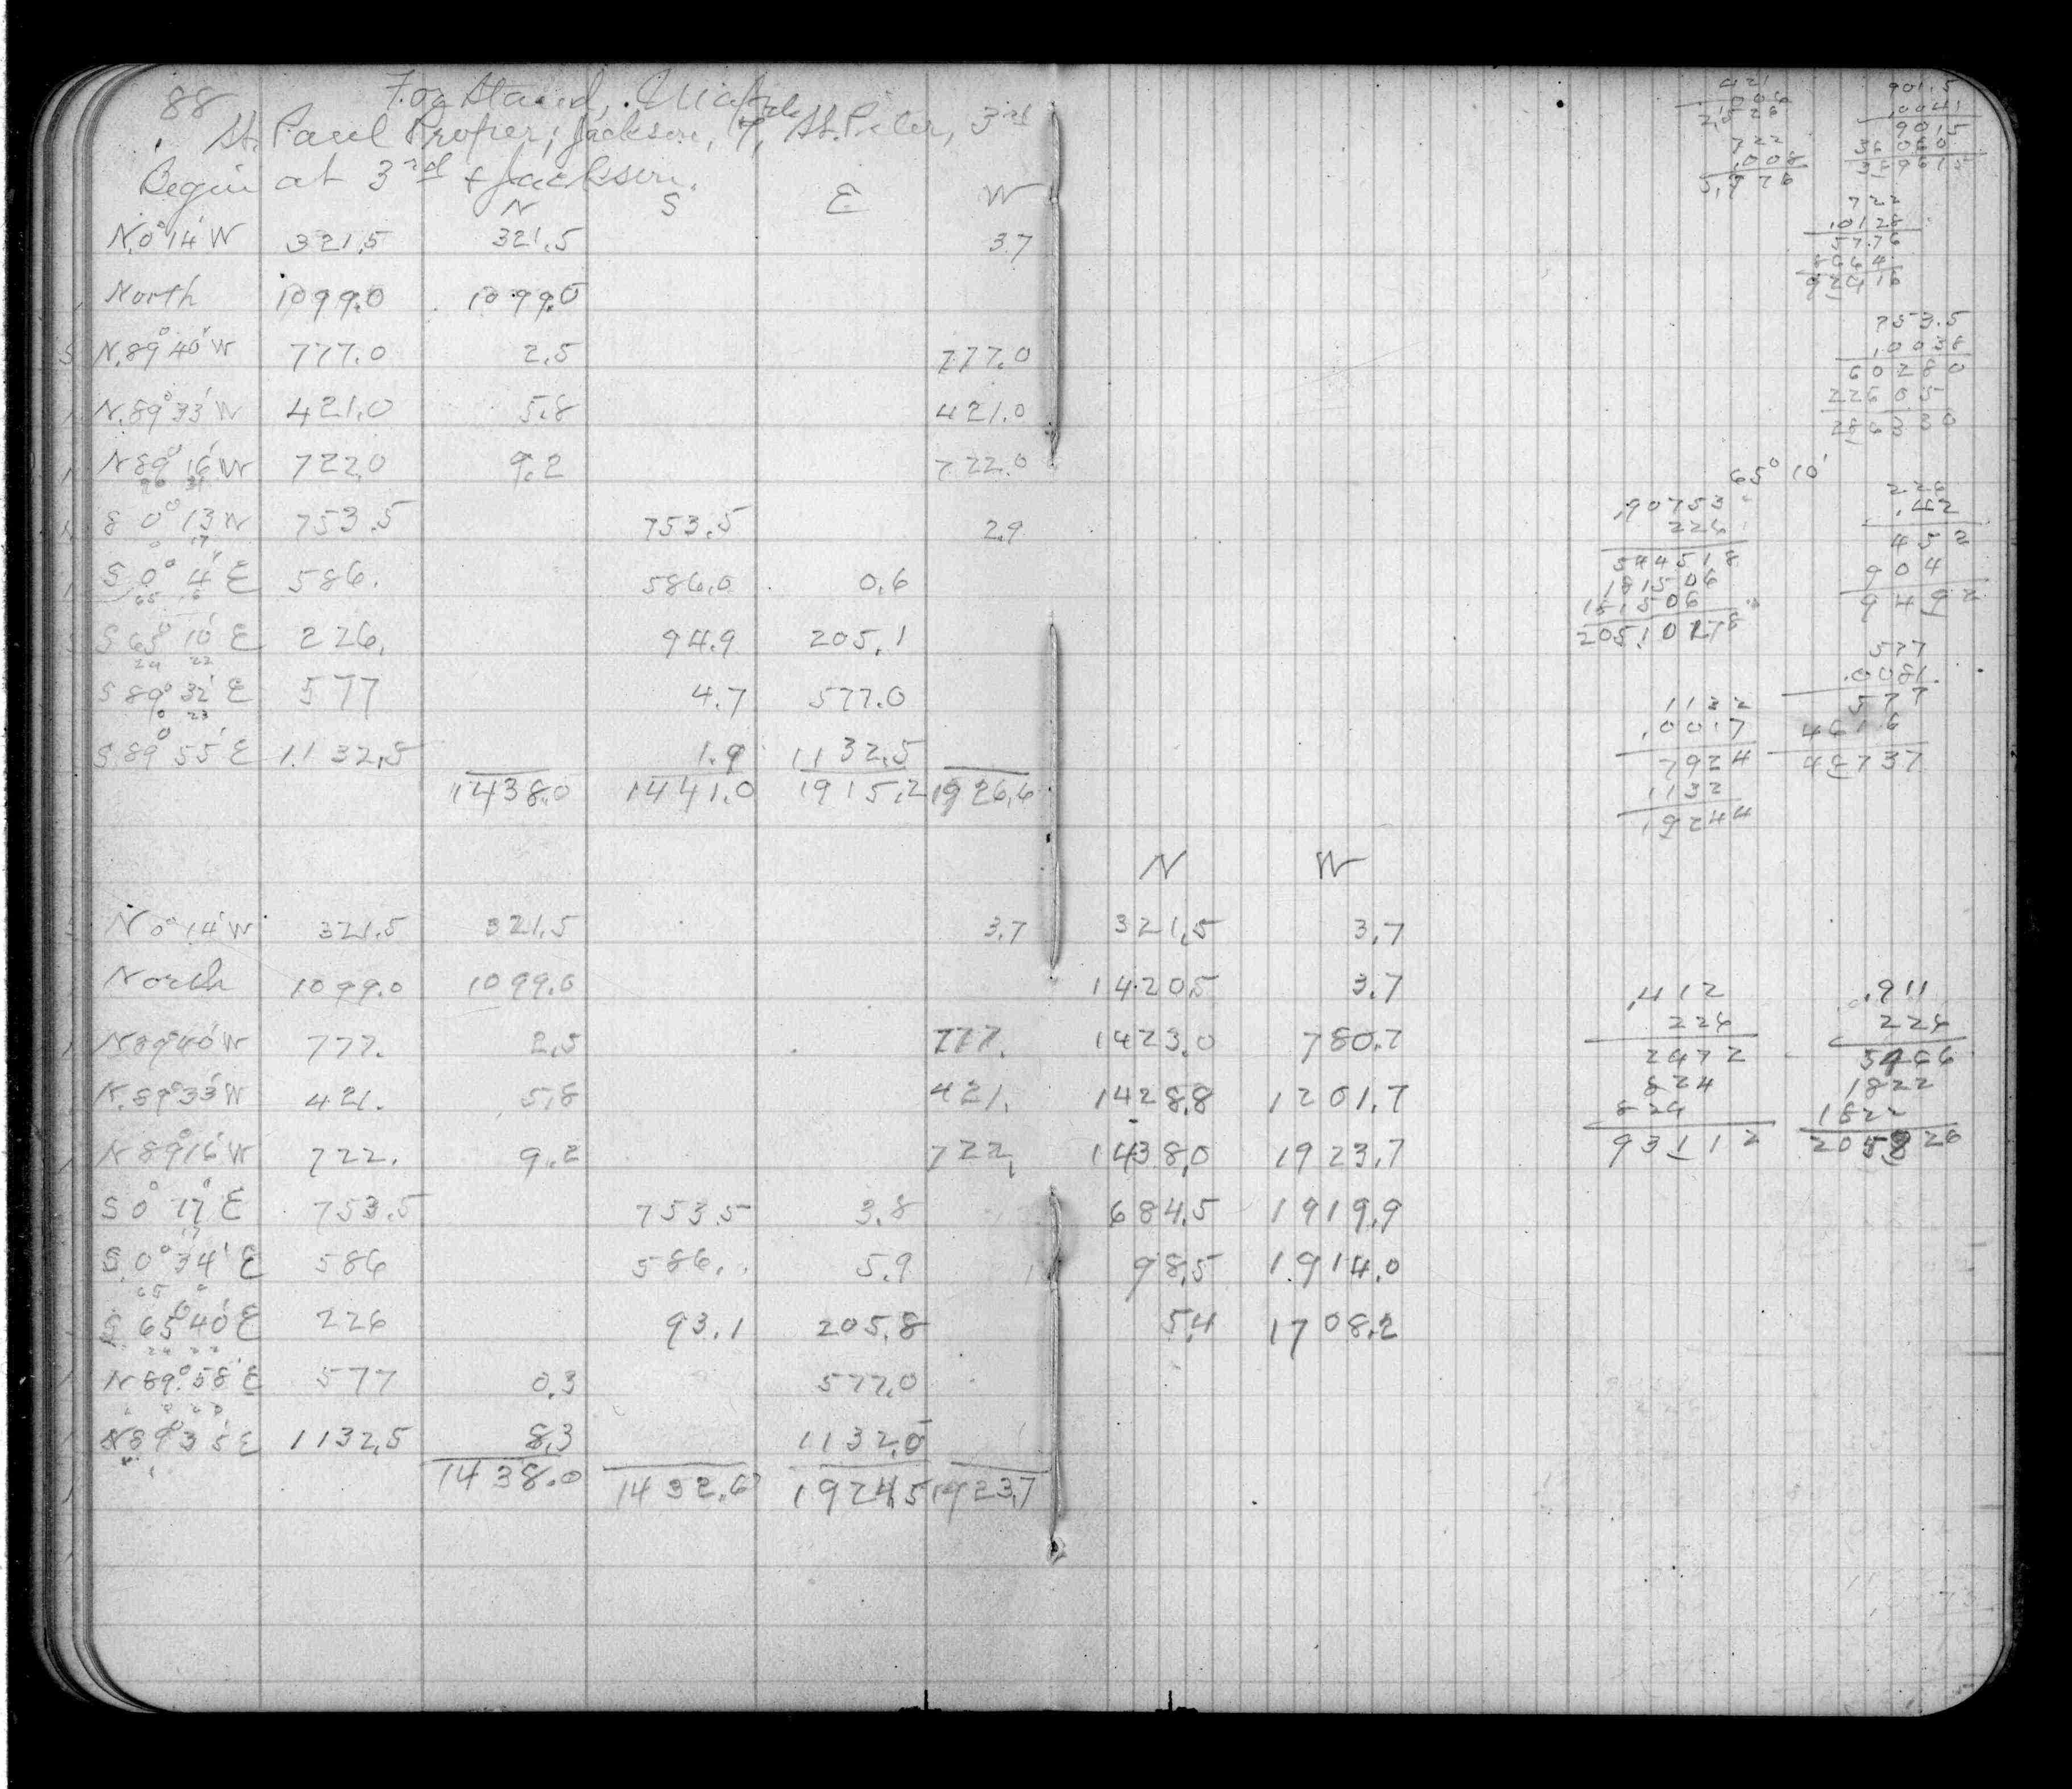 88
St. Paul Proper, Jackson, 7th, St. Peter, 3rd
Begin at 3rd & Jackson.
N S E W
N.0°14'W 321.5 321.5 3.7
North 1099.0 1099.0
N.89°40'W 777.0 2.5 777.0
N.89°33'W 421.0 5.8 421.0
N89°16'W 722.0 9.2 722.0
S 0°13'W 753.5 753.5 2.9
0 17
S 0° 4' E 586. 586.0 0.6
S 65° 10' E 226. 94.9 205.1
24 22
S 89° 32' E 577 4.7 577.0
0 23
S 89° 55' E 1132.5 1.9 1132.5
1438.0 1441.0 1915.2 1926.6
N 0°14'W 321.5 321.5 3.7
North 1099.0 1099.0
N89°40'W 777. 2.5 777.
N.89°33'W 421. 5.8 421.
N 89°16'W 722. 9.2 722.
S 0° 17' E 753.5 753.5 3.8
17
S. 0° 34' E 586 586. 5.9
S 65°40'E 226 93.1 205.8
N 89°58'E 577 0.3 577.0
N89°35'E 1132.5 8.3 1132.0
1438.0 1432.6 1924.5 1923.7
N W
321.5 3.7
1420.5 3.7
1423.0 780.7
1428.8 1201.7
1438.0 1923.7
684.5 1919.9
98.5 1914.0
5.4 1708.2
421
.006
2.526
722
.008
5.776
901.5
.0041
9015
36060
369615
722
.0128
57.76
8664
92416
753.5
.0038
60280
22605
286330
65° 10'
.90753
226
544518
181506
181506
205.10178
226
.42
452
904
9492
577
.0081
577
4616
46737
1132
.0017
7924
1132
19244
.412
226
2472
824
824
93112
.911
226
5466
1822
1822
205886